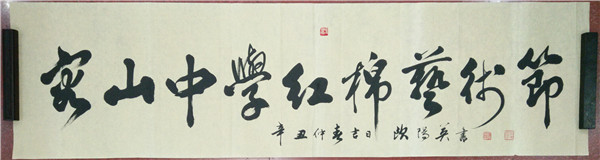 容山中學红棉藝術節
辛丑仲春吉日 欧陽英書